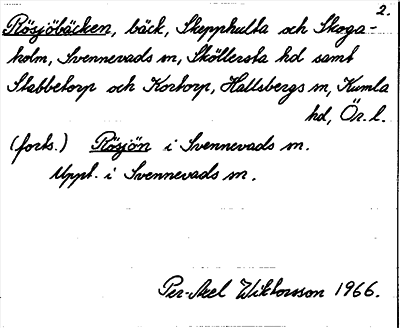 2.
Rösjöbäcken, bäck, Skepphulta och Skoga-
holm, Svennevads sn, Sköllersta hd samt
Stabbetorp och Kortorp, Hallsbergs sn, Kumla
hd, Ör. l.
(forts.) Rösjön i Svennevads sn.
Uppt. i Svennevads sn.
Per-Axel Wiktorsson 1966.